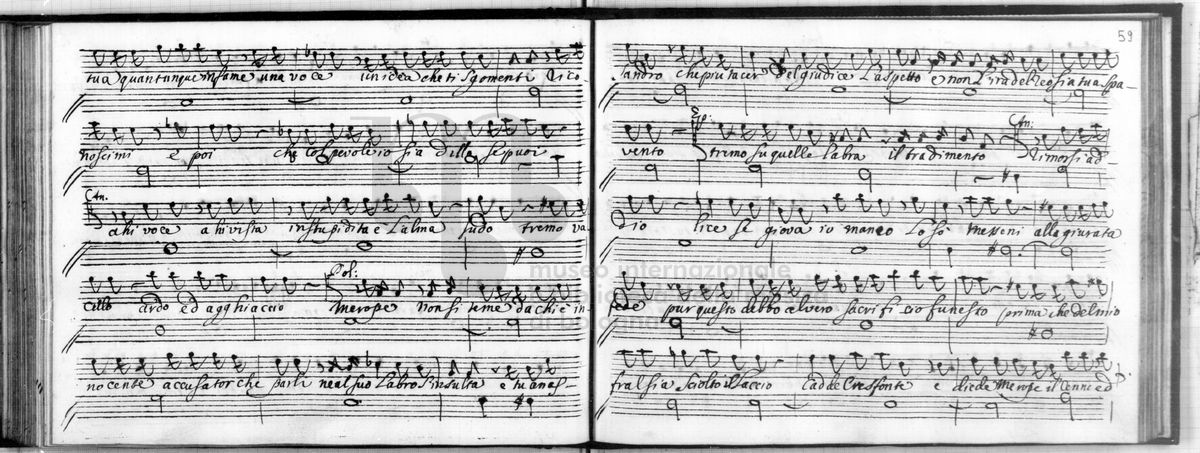 tua quantunque infame una voce un idea che ti sgomenti rico-
noscimi e poi che colpevole io sia dillo se puoi
An.
ahi voce ahi vista instupidita e l'alma sudo tremo va-
Pol:
cillo ardo ed agghiaccio Merope non si teme da chi e in-
nocente accusator che parli ne al suo labro l'insulta e tu anas-
59
sandro che piu tacer del giudice l'aspetto e non l'ira del Reo sia tua spa-
Ep: An:
vento tremo su quelle labra il tradimento rimorsi ad-
dio lice se giova io manco lo so Messeni alla giurata
fede pur questo debbo al vero sacrificio funesto prima che del mio
fral sia sciolto il laccio cadde Cresfonte e diede Merope il cenno ed
museo internazionale
di bologna